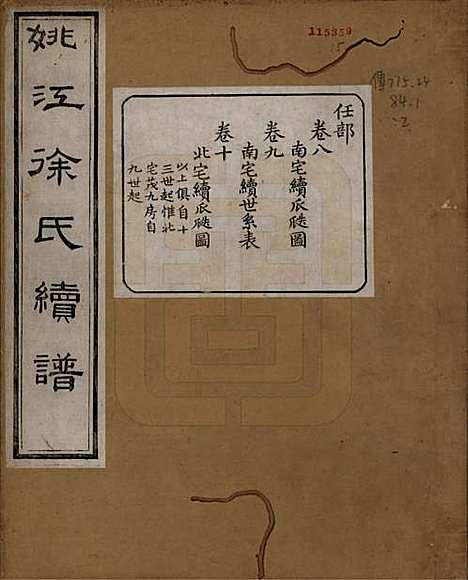 姚江徐氏續譜
任部
卷八
南宅續瓜瓞圖
卷九
南宅續世系表
卷十
北宅續瓜瓞圖
以上俱自十
三世起惟北
宅茂九房自
九世起
115359
15
傳775.24
84.1
:2